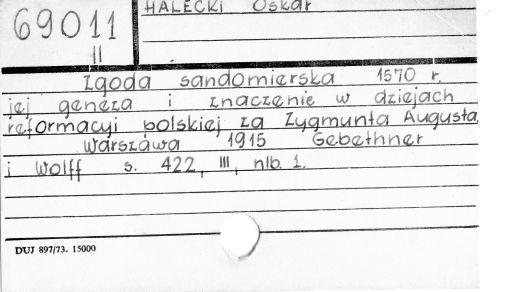 69011
II
HALECKI Oskar
Zgoda sandomierska 1570 r.
jej geneza i znaczenie w dziejach
reformacyi polskiej za Zygmunta Augusta
Warszawa 1915 Gebethner
i Wolff s. 422, III, nlb. 1.
DUJ 897/73. 15000